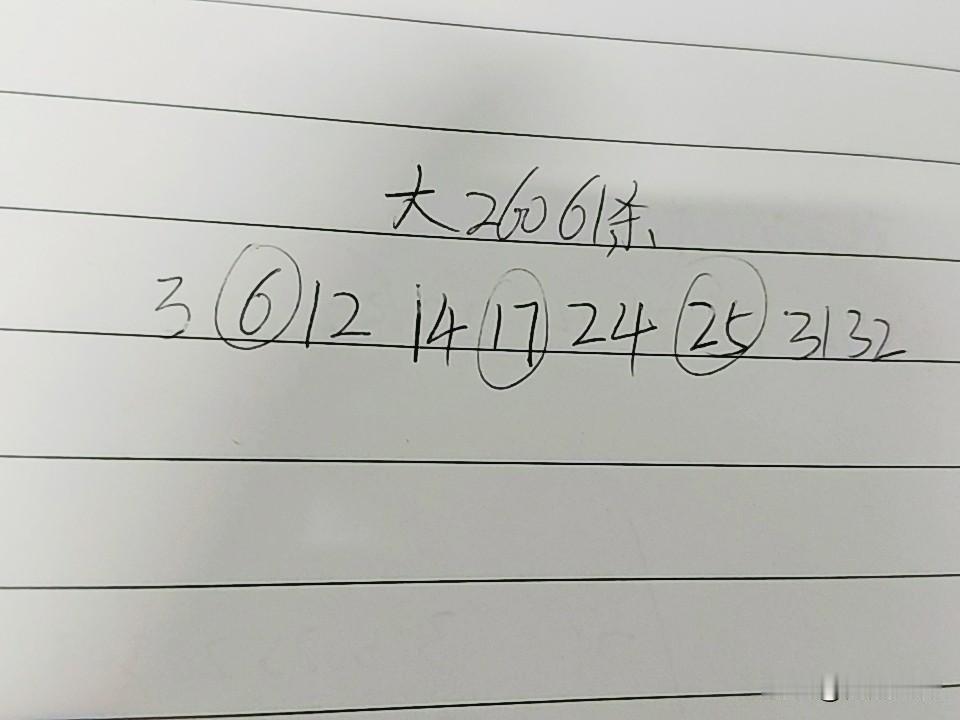 大26061杀
3 6 12 14 17 24 25 31 32